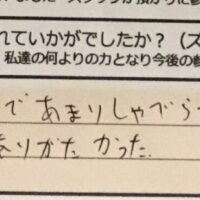 れていかがでしたか？（ス
私達の何よりの力となり今後の参
であまりしゃべら
ありがたかった